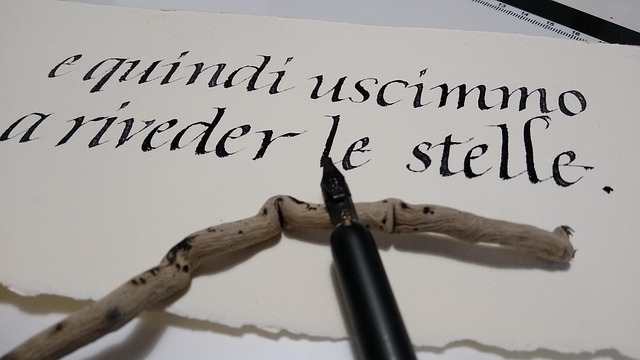 e quindi uscimmo
a riveder le stelle.